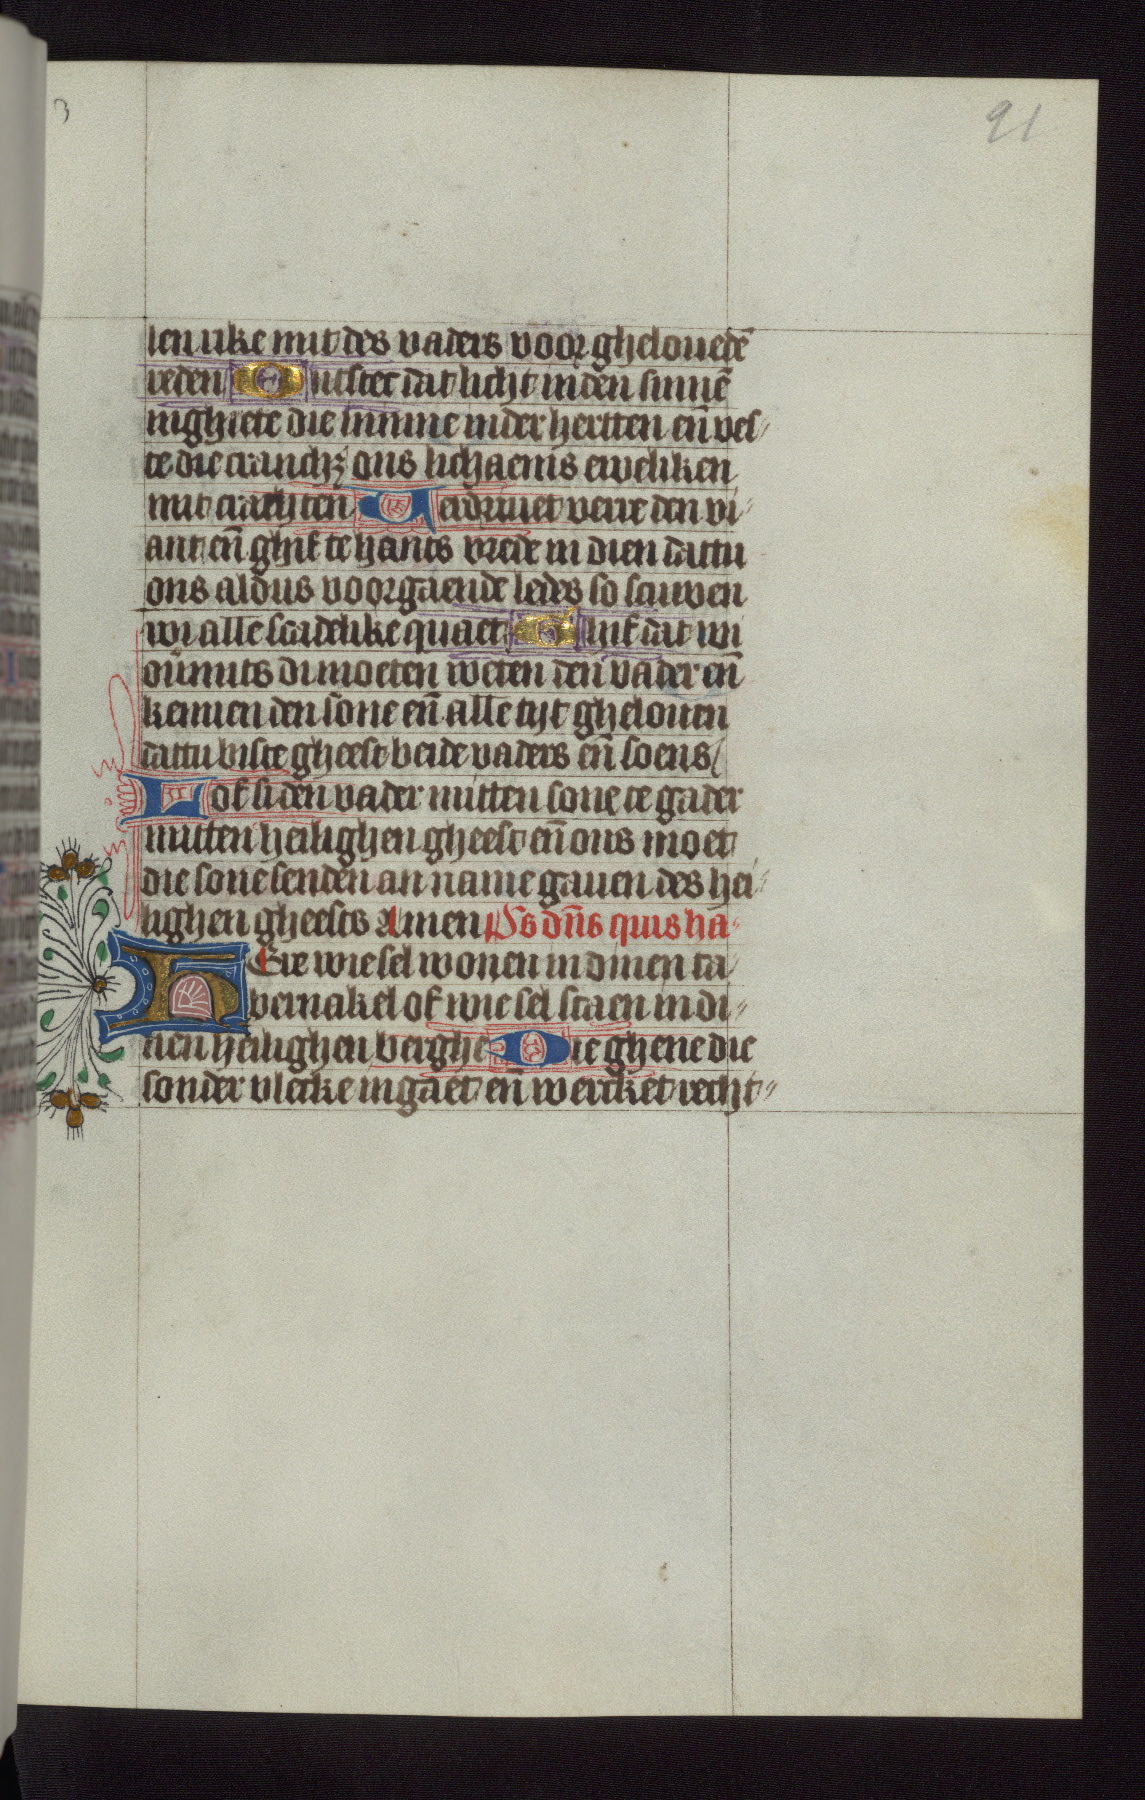 91
len rike mit des vaders voor ghelouedē
reden Ontstec dat licht in den sinnē
inghiete die minne in der hertten eñ ves〃
te die cranch₃ ons lichaems eweliken
mit crachten Verdriuet verre den vi〃
ant eñ ghif te hants vrede in dien dattu
ons aldus voorgaende ledes so scuwen
wi alle scadelike quaet Ghif dat wi
ou̅mits di moeten weten den vader eñ
kennen den sone eñ alle tijt ghelouen
dattu biste gheest beide vaders eñ soens
Lof si den vader mitten sone te gader
mitten heilighen gheest eñ ons moet
die sone senden an name gauen des hei〃
lighen gheests Amen Ps dn̄s quis ha〃
HEre wie sel wonen in dinen ta
bernakel of wie sel staen in di〃
nen heilighen berghe Die ghene die
sonder vlecke ingaet eñ wercket recht〃